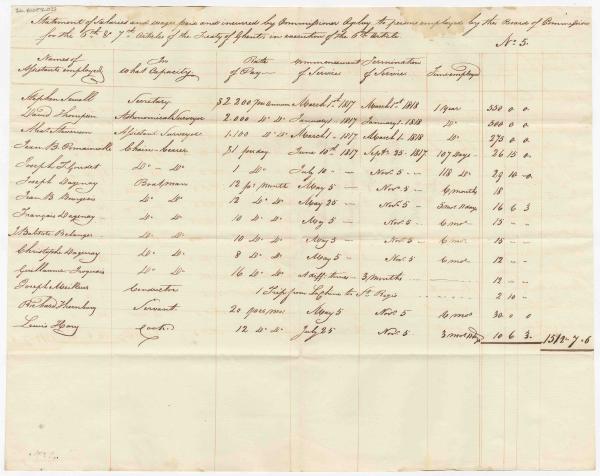 Statement of Salaries and wages paid and incurred by Commissioner Ogilvy to persons employed by the Board of Commissioners
for the 6th & 7th Articles of the Treaty of Ghent in execution of the 6th Article
No. 3.
Names of Assistants employed In what Capacity Rate of Pay Commencement of Service Termination of Service Time employed
Stephen Sewall Secretary $2.200 per annum March 1st 1817 March 1st 1818 1 year 550 0 0
David Thompson Astronomical Surveyor 2.000 do do January 1 - 1817 January 1 - 1818 do 500 0 0
Alexr Stevenson Assistant Surveyor 1.100 do do March 1 - 1817 March 1. 1818 do 275 0 0
Jean B. Chain-bearer $1 per day June 10th 1817 Septr 25 - 1817 107 Days - 26 15 0
Joseph do - do 1 do July 10 - Novr 5 - 118 do 29 10 - 0
Joseph Dagenay Boatman 12 pr month May 5 Novr 5 6 months 18
Jean B Bourgeois do do 12 do do May 25 Novr 5 16 6 3
François Dagenay do do 10 do do May 5 Novr 5 6 mos 15
J Babtiste Belanger do do 10 do do May 5 Novr 5 6 mos 15
Christophe Dagenay do do 8 do do May 5 Novr 5 6 mos 12
Guillaume Iroquois do do 16 do do At diff: times - 3 Months 12
Joseph Conductor 1 Trip from Lachine to St Regis 2 10 -
Richard Thornbury Servant 20 per mo May 5 Novr 5 6 mos 30 0 0
Lewis Cook 12 do do July 25 Novr 5 10 6 3 1512 - 7 - 6